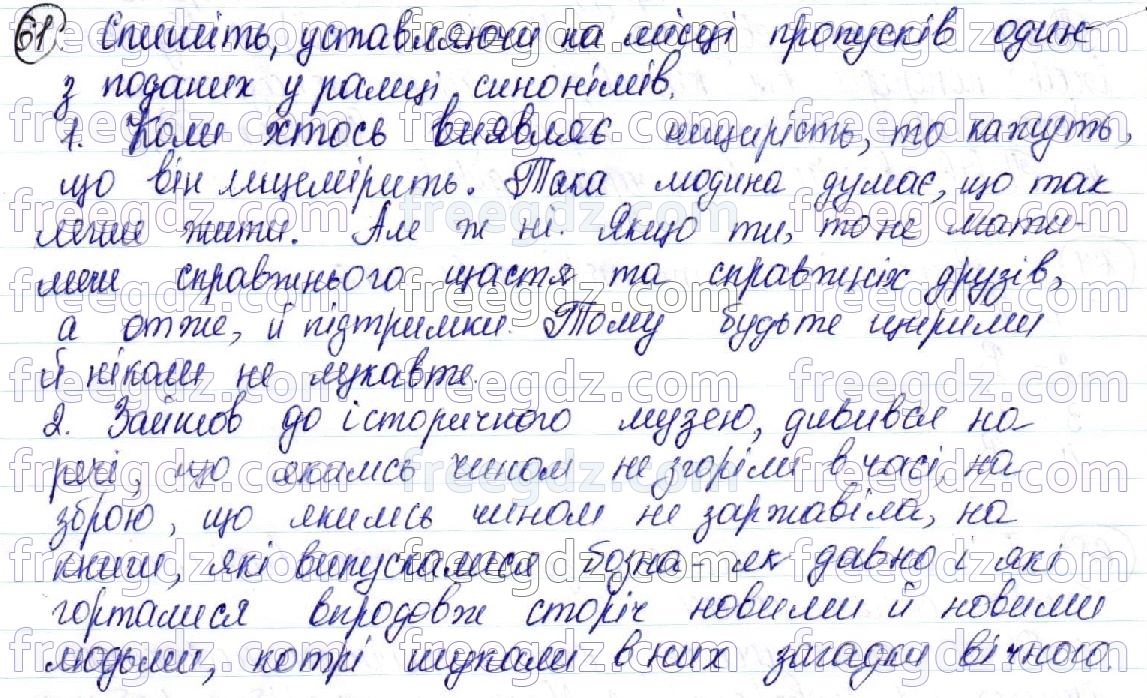 61. Спишіть, уставляючи на місці пропусків один
з поданих у рамці синонімів.
1. Коли хтось виявляє нещирість, то кажуть,
що він лицемірить. Така людина думає, що так
легше жити. Але ж ні. Якщо ти, то не мати-
меш справжнього щастя та справжніх друзів,
а отже, й підтримки. Тому будьте щирими
й ніколи не лукавте.
2. Зайшов до історичного музею, дивився на
речі, що якимсь чином не згоріли в часі, на
зброю, що якимсь чином не заржавіла, на
книги, які випускалися бозна-як давно і які
горталися впродовж сторіч новими й новими
людьми, котрі шукали в них загадки вічного.
freegdz.com freegdz.com freegdz.com